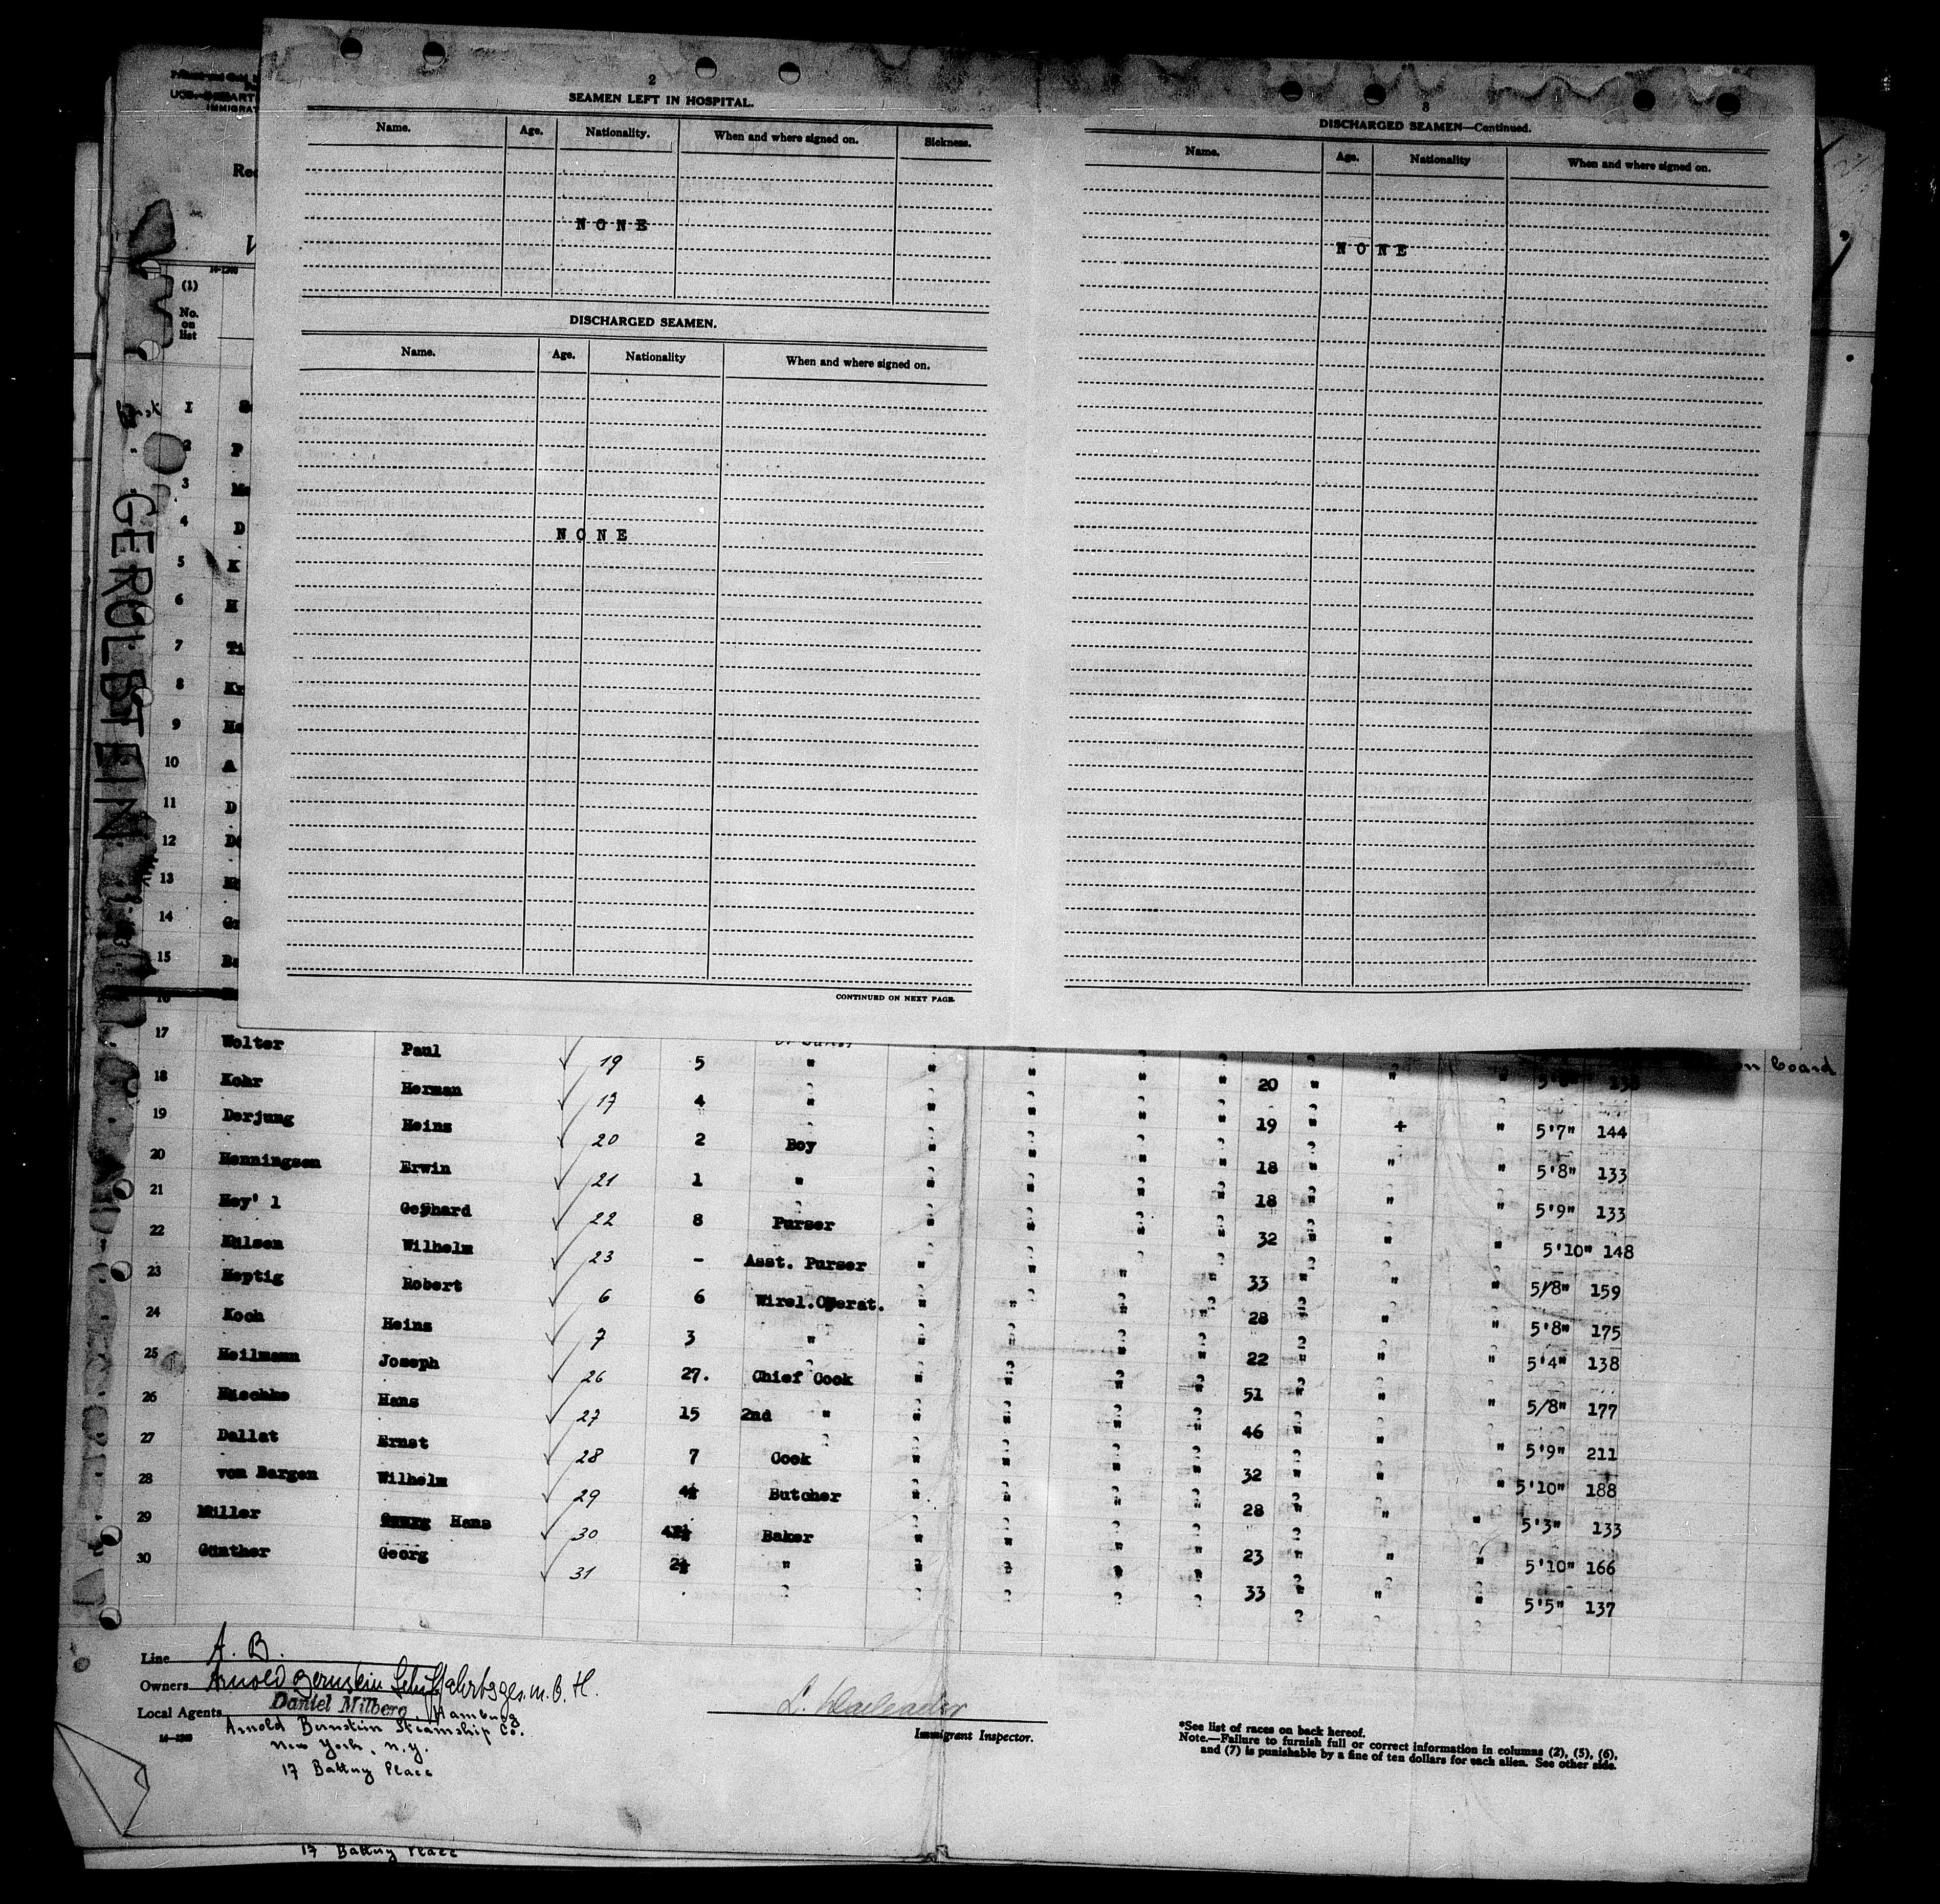 2
SEAMEN LEFT IN HOSPITAL.
Name. Age. Nationality. When and where signed on. Sickness.
NONE
DISCHARGED SEAMEN.
Name. Age. Nationality When and where signed on.
NONE
CONTINUED ON NEXT PAGE.
3
DISCHARGED SEAMEN—Continued.
Name. Age. Nationality When and where signed on.
NONE
IMMIGRAT
(1)
No.
on
list
GEROLSTEIN
I
2 P
3
4 D
5 K
6 H
7 Ti
8 Kr
9 He
10 A
11 D
12
13
14 Gr
15
16
on board
17 Wolter Paul ✓ 19 5 " " " " " 20 " " " 5'8"
18 Kohr Herman ✓ 17 4 " " " " " 19 " + " 5'7" 144
19 Derjung Heinz ✓ 20 2 Boy " " " " 18 " " " 5'8" 133
20 Henningsen Erwin ✓ 21 1 " " " " " 18 " " " 5'9" 133
21 Hey' l Gephard ✓ 22 8 Purser " " " " 32 " " " 5'10" 148
22 Hülsen Wilhelm ✓ 23 - Asst. Purser " " " " 33 " " " 5/8" 159
23 Heptig Robert ✓ 6 6 Wirel.Operat. " " " " 28 " " " 5'8" 175
24 Koch Heinz ✓ 7 3 " " " " " 22 " " " 5'4" 138
25 Heilmann Joseph ✓ 26 27. Chief Cook " " " " 51 " " " 5/8" 177
26 Nischke Hans ✓ 27 15 2nd " " " " " 46 " " " 5'9" 211
27 Dallat Ernst ✓ 28 7 Cook " " " " 32 " " " 5'10" 188
28 von Bargen Wilhelm ✓ 29 4½ Butcher " " " " 28 " " " 5'3" 133
29 Müller Hans ✓ 30 Baker " " " " 23 " " " 5'10" 166
30 Günther Georg ✓ 31 2½ " " " " " 33 " " " 5'5" 137
Line A. B.
Owners Arnold Bernstein Schiffahrtsges.m.b.H.
Hamburg
Local Agents Daniel Milberg
Arnold Bernstein Steamship Co.
New York, N.Y.
17 Battery Place
14—1240
Immigrant Inspector.
*See list of races on back hereof.
Note.—Failure to furnish full or correct information in columns (2), (5), (6),
and (7) is punishable by a fine of ten dollars for each alien. See other side.
17 Battery Place